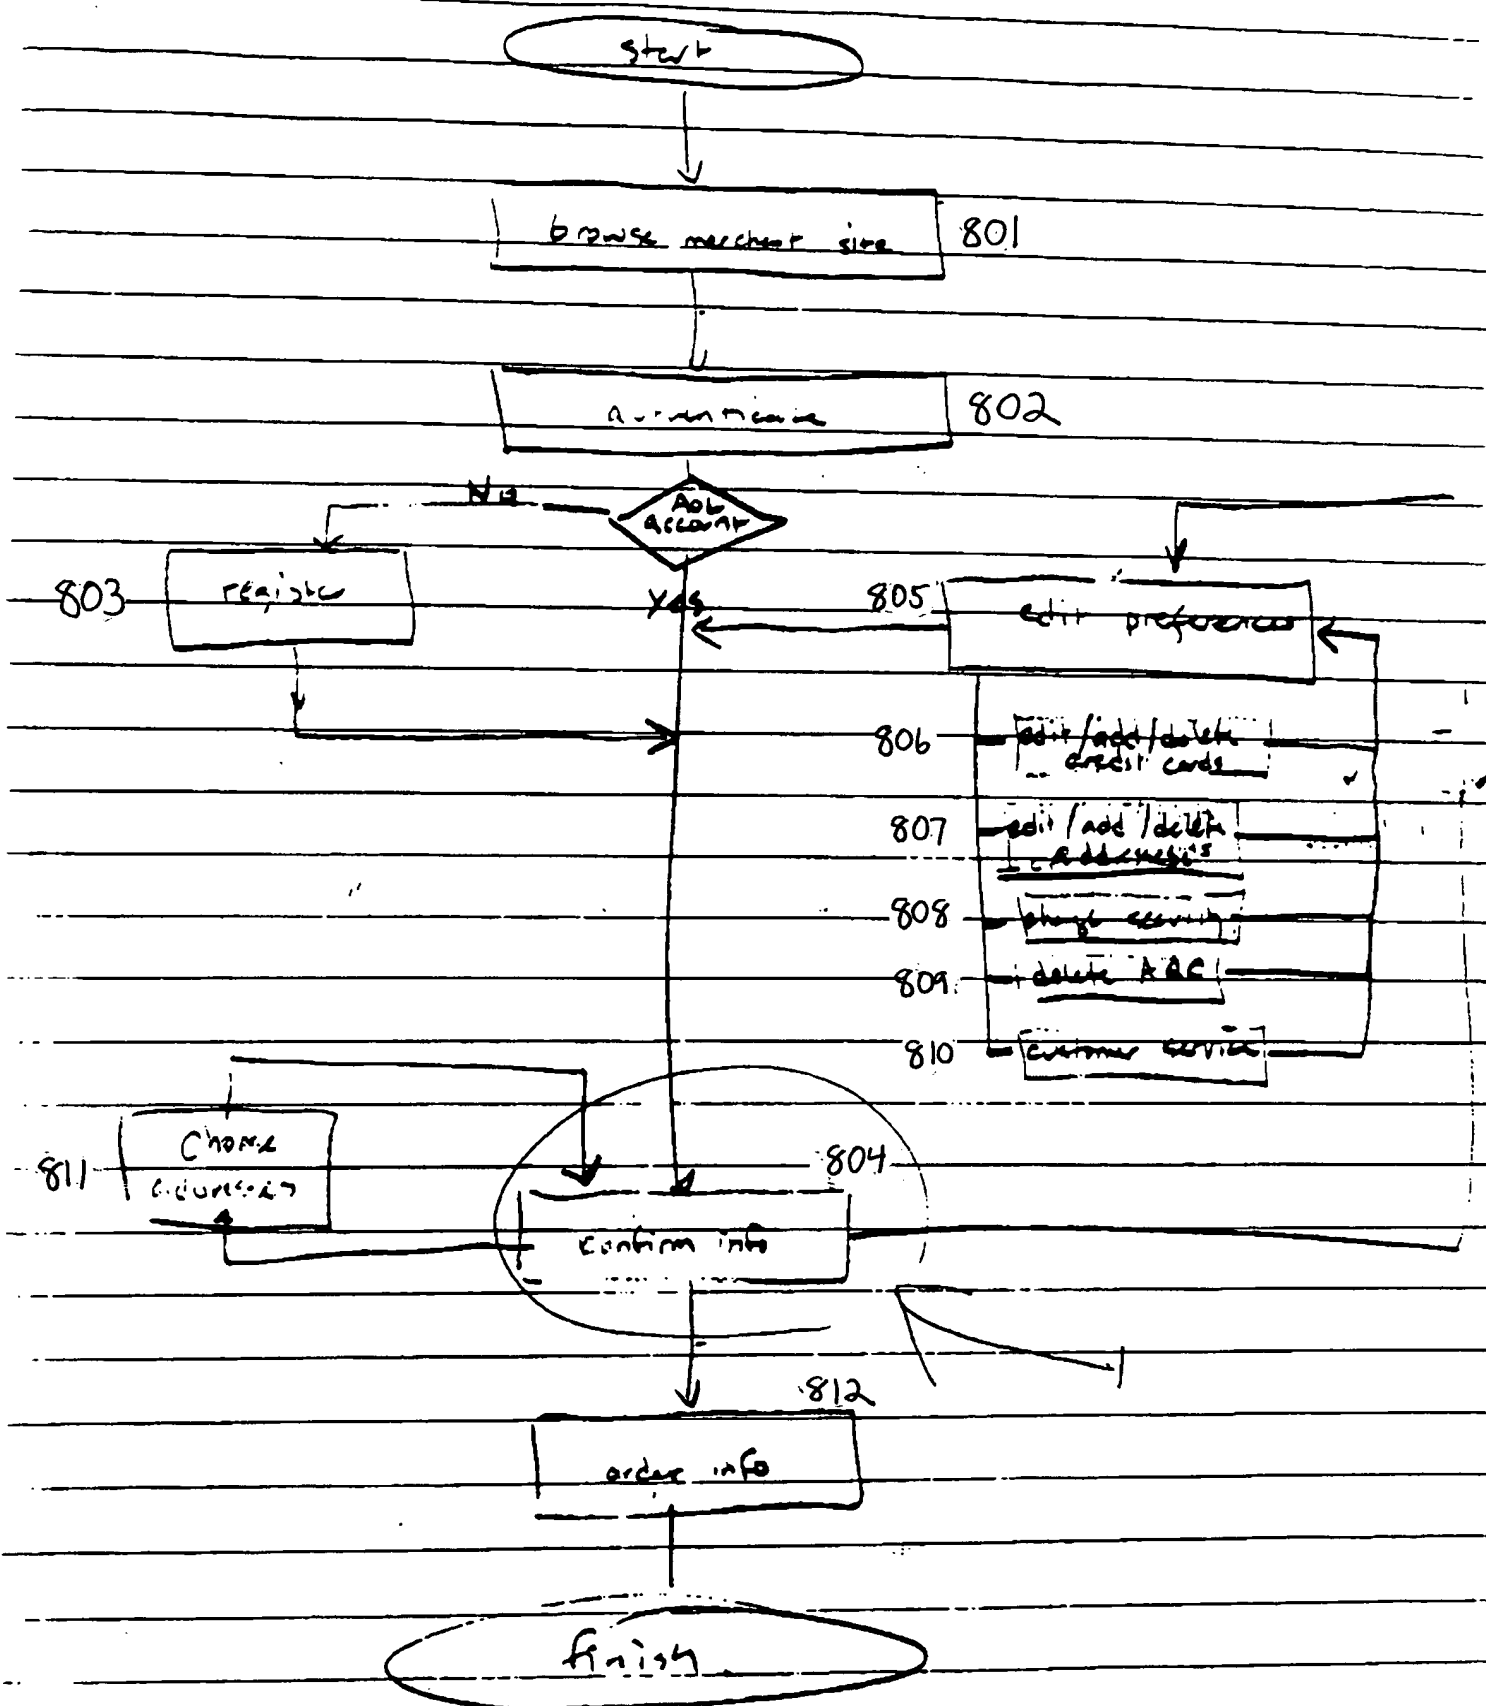 start
browse merchant site
801
authenticate
802
No
AOL
account
803
register
Yes
805
edit preferences
806
edit/add/delete
credit cards
807
edit/add/delete
808
809
delete
810
customer service
811
804
confirm info
812
order info
finish